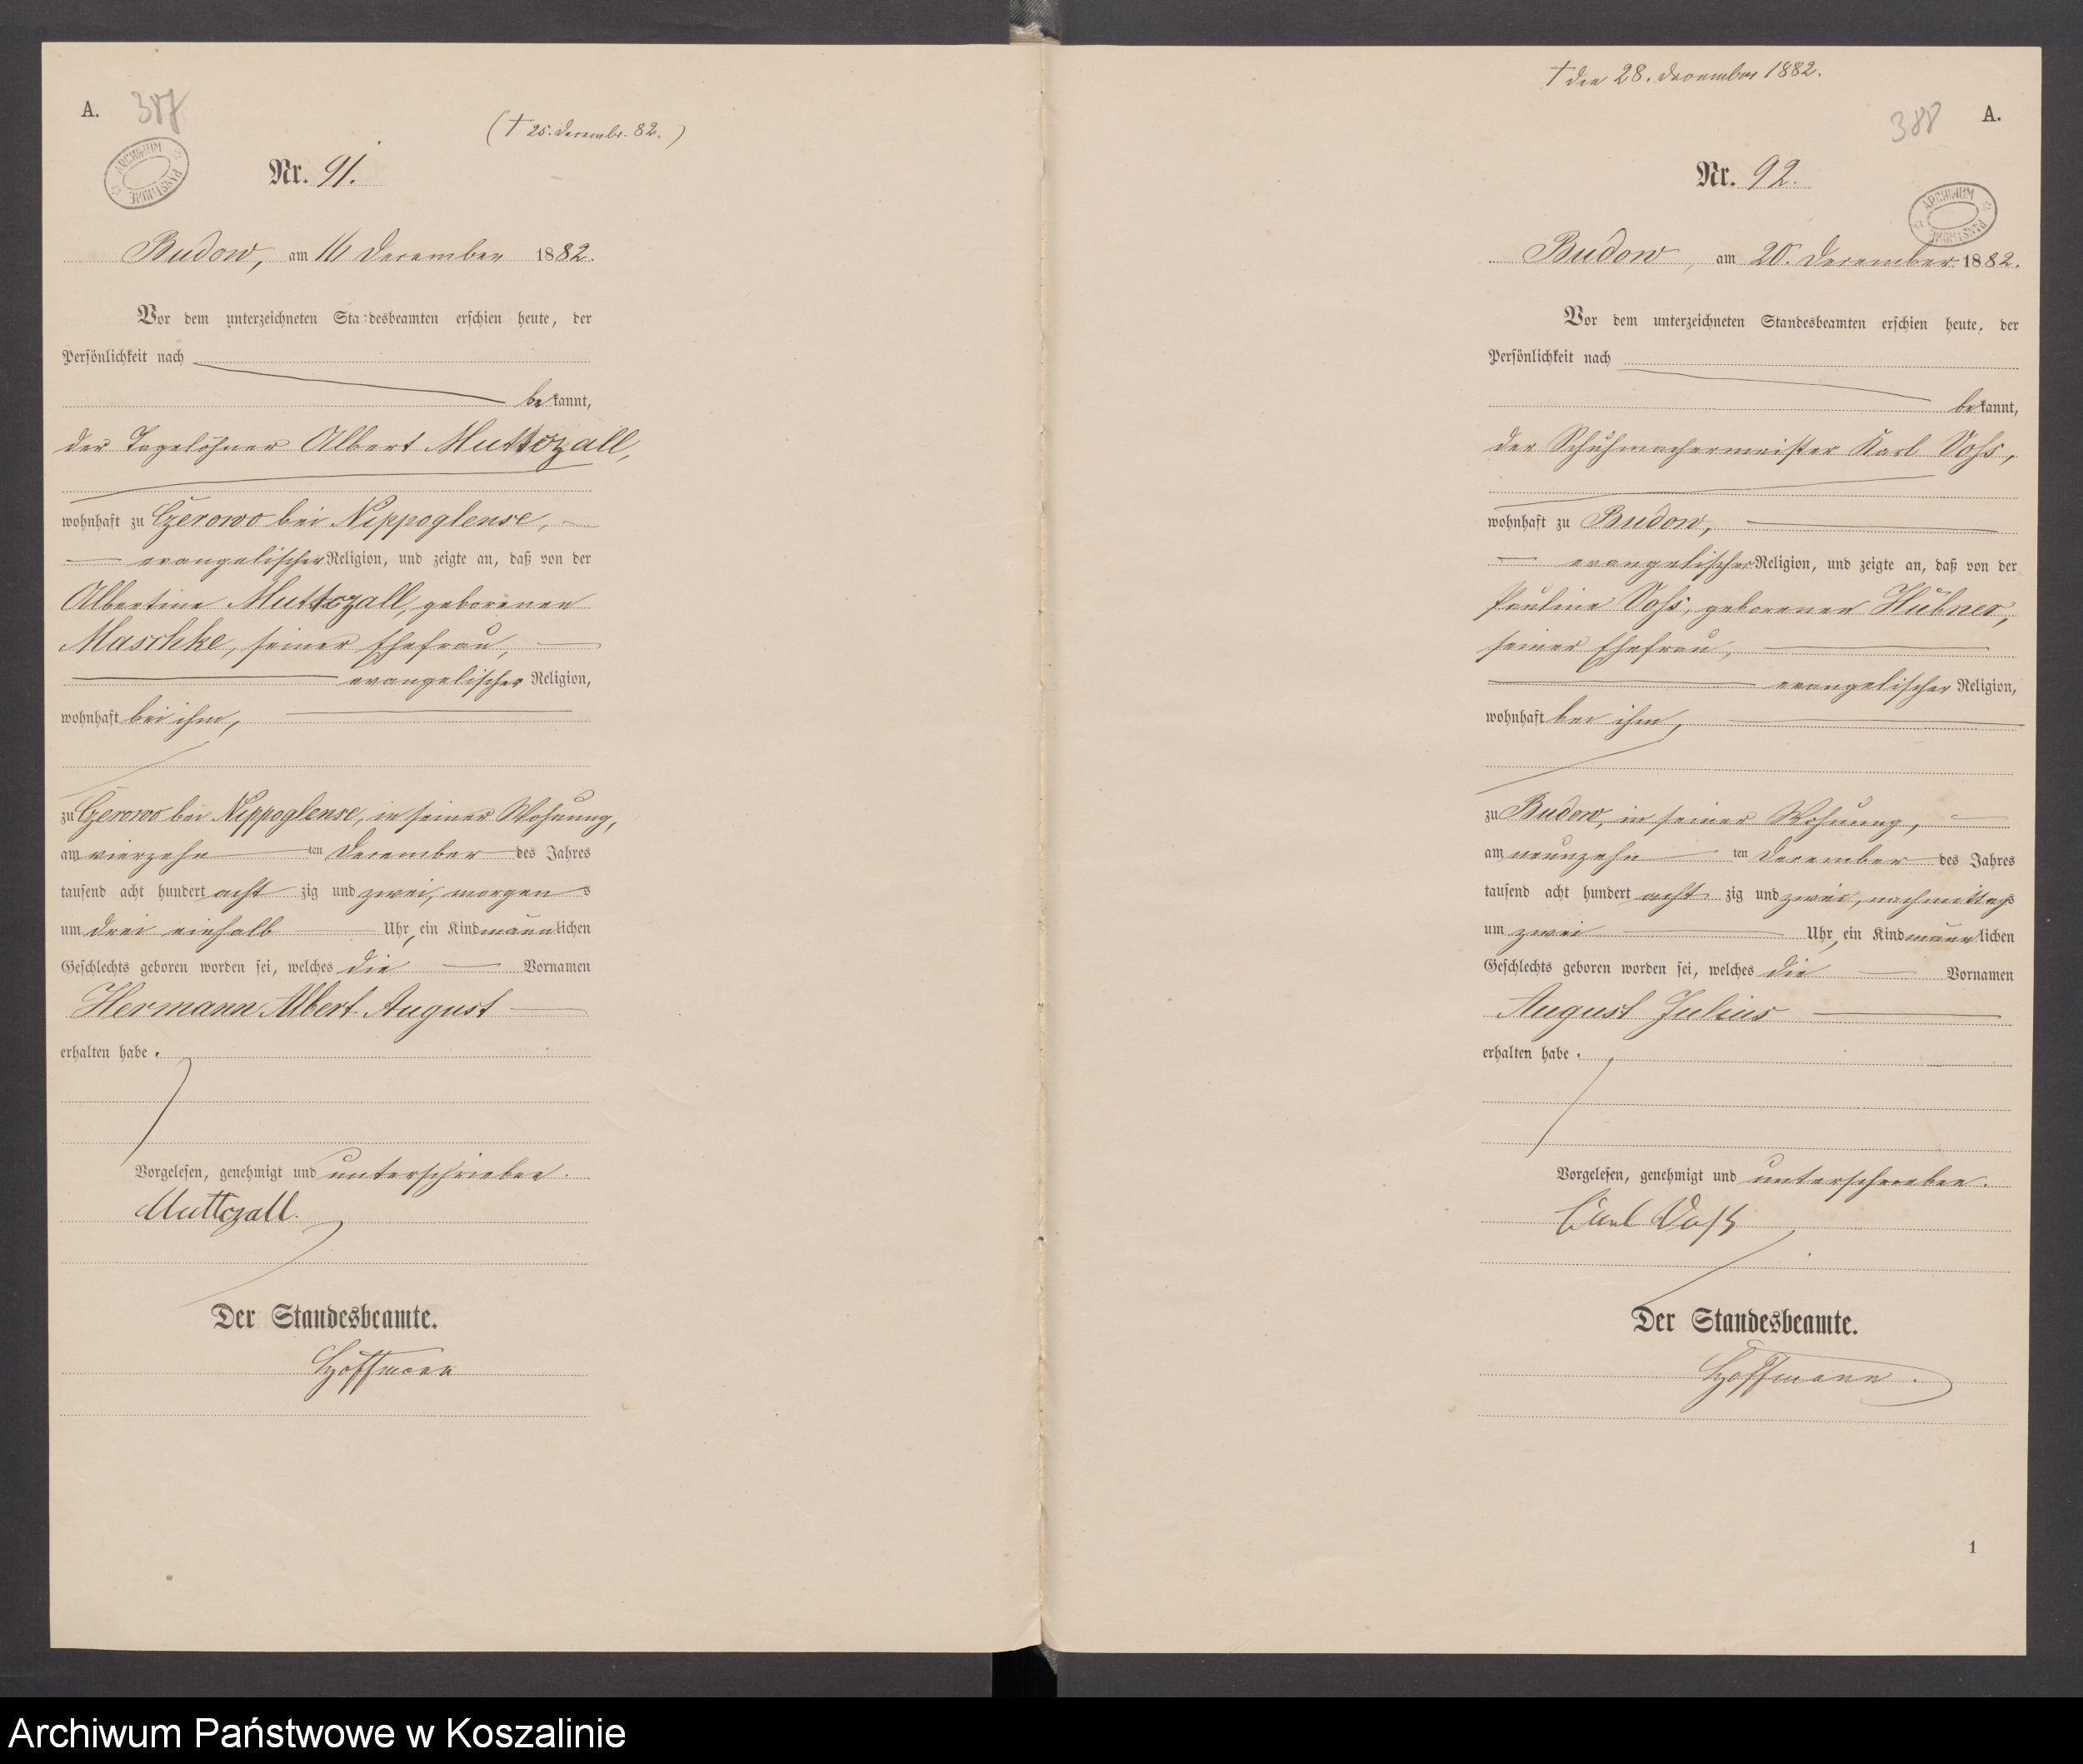 A. 387
(† 25. Decembr. 82.)
ARCHIWUM PAŃSTWOWE
Nr. 91.
Budow, am December 1882.
Vor dem unterzeichneten Sta:desbeamten erschien heute, der
Persönlichkeit nach
bekannt,
der Tagelöhner Albert Muttczall,
wohnhaft zu Czerowo bei Nippoglense,
evangelischer Religion, und zeigte an, daß von der
Albertine Muttczall, geborenen
Maschke, seiner Ehefrau,
evangelischer Religion,
wohnhaft bei ihm,
zu Czerowo bei Nippoglense, in seiner Wohnung,
am vierzehn ten December des Jahres
tausend acht hundert acht zig und zwei, morgens
um drei einhalb Uhr, ein Kind männlichen
Geschlechts geboren worden sei, welches die Vornamen
Hermann Albert August
erhalten habe.
Vorgelesen, genehmigt und unterschrieben.
Muttczall.
Der Standesbeamte.
Hoffmann
† den 28. December 1882.
388 A.
Nr. 92.
ARCHIWUM PAŃSTWOWE
Budow, am 20. December 1882.
Vor dem unterzeichneten Standesbeamten erschien heute, der
Persönlichkeit nach
bekannt,
der Schuhmachermeister Karl Vohs,
wohnhaft zu Budow,
evangelischer Religion, und zeigte an, daß von der
Pauline Vohs, geborenen Hübner,
seiner Ehefrau,
evangelischer Religion,
wohnhaft bei ihm,
zu Budow, in seiner Wohnung,
am neunzehn ten December des Jahres
tausend acht hundert acht zig und zwei, nachmittags
um zwei Uhr, ein Kind männlichen
Geschlechts geboren worden sei, welches die Vornamen
August Julius
erhalten habe.
Vorgelesen, genehmigt und unterschrieben.
Carl
Der Standesbeamte.
Hoffmann.
1
Archiwum Państwowe w Koszalinie